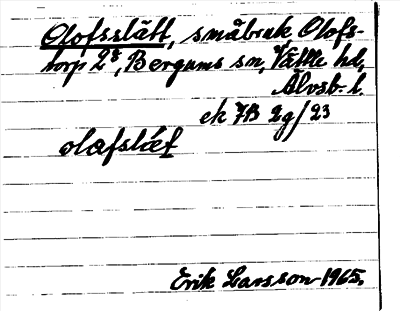 Olofsslätt, småbruk Olofs-
torp 2⁸, Bergums sn, Vättle hd,
Älvsb. l.
ek 7B 2g/23
olafslǽt
Erik Larsson 1965.